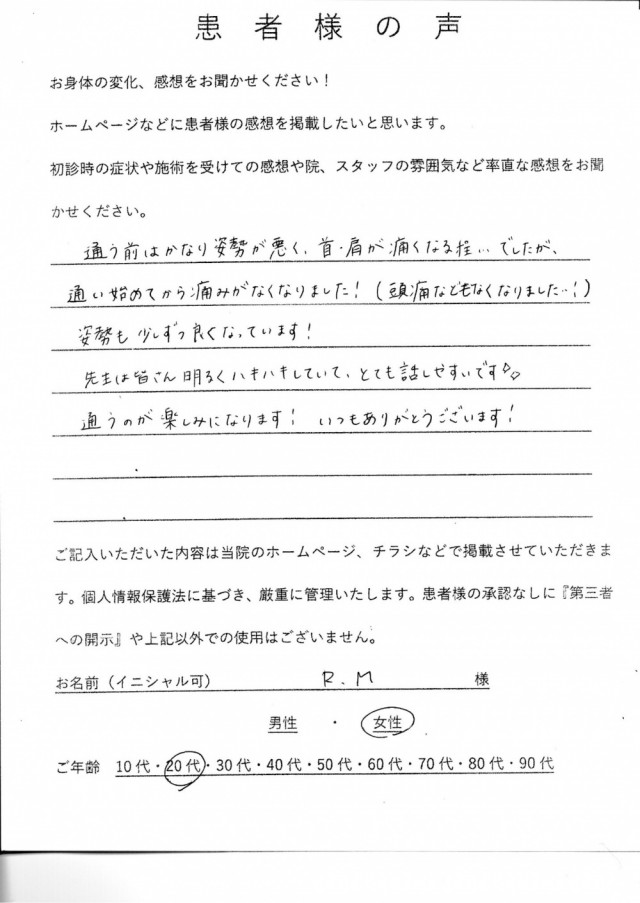 患者様の声
お身体の変化、感想をお聞かせください！
ホームページなどに患者様の感想を掲載したいと思います。
初診時の症状や施術を受けての感想や院、スタッフの雰囲気など率直な感想をお聞
かせください。
通う前はかなり姿勢が悪く、首・肩が痛くなる程…でしたが、
通い始めてから痛みがなくなりました！（頭痛などもなくなりました…！）
姿勢も少しずつ良くなっています！
先生は皆さん明るくハキハキしていて、とても話しやすいです
通うのが楽しみになります！ いつもありがとうございます！
ご記入いただいた内容は当院のホームページ、チラシなどで掲載させていただきま
す。個人情報保護法に基づき、厳重に管理いたします。患者様の承認なしに『第三者
への開示』や上記以外での使用はございません。
お名前（イニシャル可） R.M 様
男性 ・ 女性
ご年齢 10代・20代・30代・40代・50代・60代・70代・80代・90代